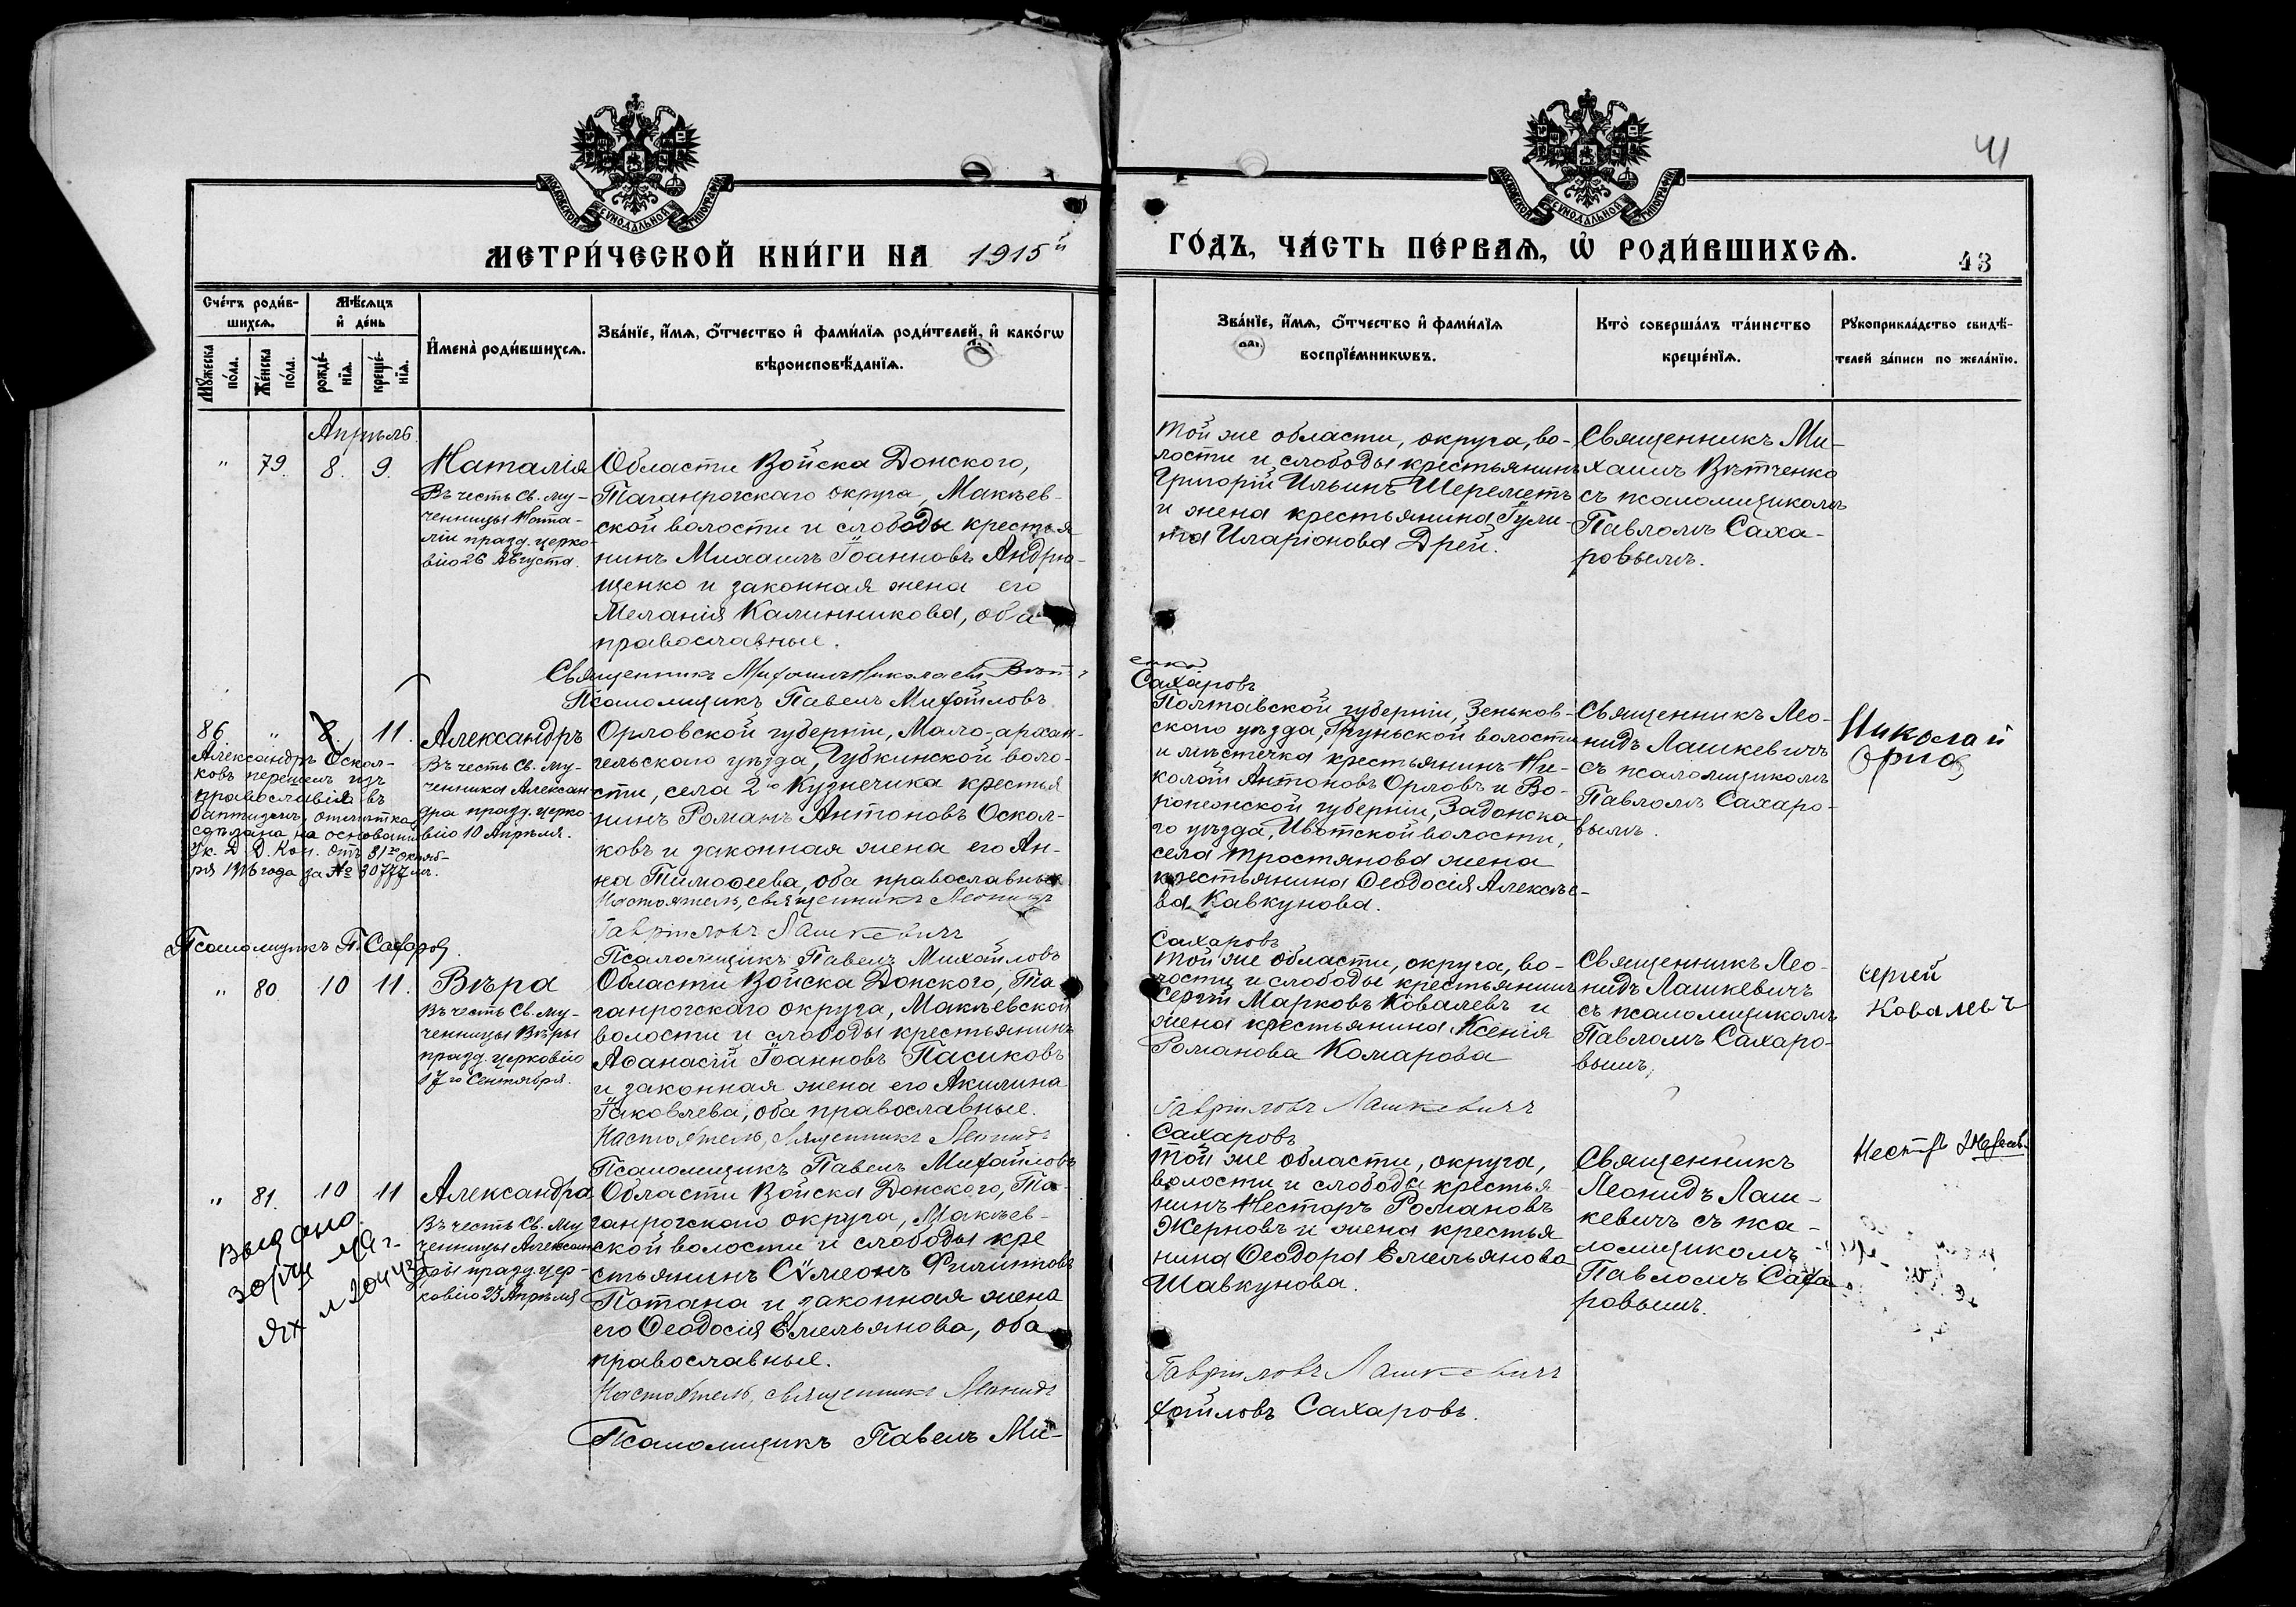 41
МОСКОВСКОЙ СѴНОДАЛЬНОЙ ТИПОГРАФІИ
МОСКОВСКОЙ СѴНОДАЛЬНОЙ ТИПОГРАФІИ
МЕТРИ́ЧЕСКОЙ КНИ́ГИ НА 1915й
ГО́ДЪ, ЧА́СТЬ ПЕ́РВАЯ, Ѡ҆ РОДИ́ВШИХСЯ.
43
Сче́тъ роди́в-
шихсѧ.
Мꙋ́жеска
по́ла.
Же́нска
по́ла.
Мѣ́сѧцъ
и҆ де́нь
рожде́-
нїѧ.
креще́-
нїѧ.
И҆мена̀ роди́вшихсѧ.
Зва́нїе, и҆́мѧ, ѻ҆́тчество и҆ фами́лїѧ роди́телей, и҆ како́гѡ
вѣроисповѣ́данїѧ.
Зва́нїе, и҆́мѧ, ѻ҆́тчество и҆ фами́лїѧ
воспрїе́мникѡвъ.
Кто̀ соверша́лъ та́инство
креще́нїѧ.
Рꙋкоприкла́дство свидѣ́-
телей за́писи по жела́нїю.
Апрѣль
" 79. 8. 9.
Наталія
Въ честь Св. му-
ченницы Ната-
ліи празд. церко-
вію 26 Августа.
Области Войска Донского,
Таганрогскаго округа, Макѣев-
ской волости и слободы крестья
нинъ Михаилъ Іоанновъ Андрю-
щенко и законная жена его
Меланія Калинникова, оба
православные.
Священникъ Михаилъ Николаевъ Вѣтч
Псаломщикъ Павелъ Михайловъ
Той же области, округа, во-
лости и слободы крестьянинъ
Григорій Ильинъ Шереметъ
и жена крестьянина Гули-
та Иларіонова Дрей.
енко
Сахаровъ
Священникъ Ми-
хаилъ Вѣтченко
съ псаломщикомъ
Павломъ Саха-
ровымъ.
86 " 8. 11.
Александръ Оскол-
ковъ перешелъ изъ
православія въ
баптизмъ, отмѣтка
сдѣлана на основаніи
Ук. Д. Д. Кон. отъ 31го Октяб-
ря 1916 года за № 30777 мъ.
Псаломщикъ П. Сахаровъ
Александръ
Въ честь Св. му-
ченника Алексан-
дра празд. церко-
вію 10 Апрѣля.
Орловской губерніи, Мало-архан-
гельскаго уѣзда, Губкинской воло-
сти, села 2го Кузнечика крестья
нинъ Романъ Антоновъ Оскол-
ковъ и законная жена его Ан-
на Тимоѳеева, оба православные
Настоятель, священникъ Леонидъ
Гавріиловъ Лашкевичъ
Псаломщикъ Павелъ Михайловъ
Полтавской губерніи, Зеньков-
скаго уѣзда, Груньской волости
и мѣстечка крестьянинъ Ни-
колай Антоновъ Орловъ и Во-
ронежской губерніи, Задонска-
го уѣзда, Ивотской волости,
села Тростянова жена
крестьянина Ѳеодосія Алексѣе-
ва Кавкунова.
Сахаровъ
Священникъ Лео-
нидъ Лашкевичъ
съ псаломщикомъ
Павломъ Сахаро-
вымъ.
Николай
" 80 10 11.
Вѣра
Въ честь Св. му-
ченницы Вѣры
празд. церковію
17го Сентября.
Области Войска Донского, Та-
ганрогскаго округа, Макѣевской
волости и слободы крестьянинъ
Аѳанасій Іоанновъ Пасиковъ
и законная жена его Акилина
Іаковлева, оба православные.
Настоятель, священникъ Леонидъ
Псаломщикъ Павелъ Михайловъ
Той же области, округа, во-
лости и слободы крестьянинъ
Сергій Марковъ Ковалевъ и
жена крестьянина Ксенія
Романова Комарова
Гавріиловъ Лашкевичъ
Сахаровъ
Священникъ Лео-
нидъ Лашкевичъ
съ псаломщикомъ
Павломъ Сахаро-
вымъ.
Сергей
Ковалевъ
" 81. 10 11
Выдано
Александра
Въ честь Св. му
ченницы Алексан-
дры празд. цер-
ковію 23 Апрѣля
Области Войска Донского, Та-
ганрогскаго округа, Макѣев-
ской волости и слободы кре
стьянинъ Сѵмеонъ Филиповъ
Потана и законная жена
его Ѳеодосія Емельянова, оба
православные.
Настоятель, священникъ Леонидъ
Псаломщикъ Павелъ Ми-
Той же области, округа,
волости и слободы крестья-
нинъ Несторъ Романовъ
Жерновъ и жена крестья
нина Ѳеодора Емельянова
Шавкунова.
Гавріиловъ Лашкевичъ
хайловъ Сахаровъ.
Священникъ
Леонидъ Лаш-
кевичъ съ пса-
ломщикомъ
Павломъ Саха
ровымъ.